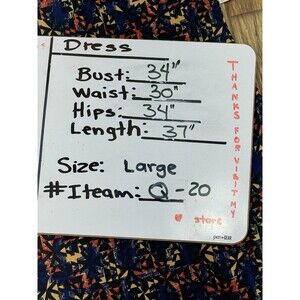 Dress
Bust: 34"
Waist: 30"
Hips: 34"
Length: 37"
Size: Large
#Iteam: Q-20
THANKS FOR VISIT MY
♥ store